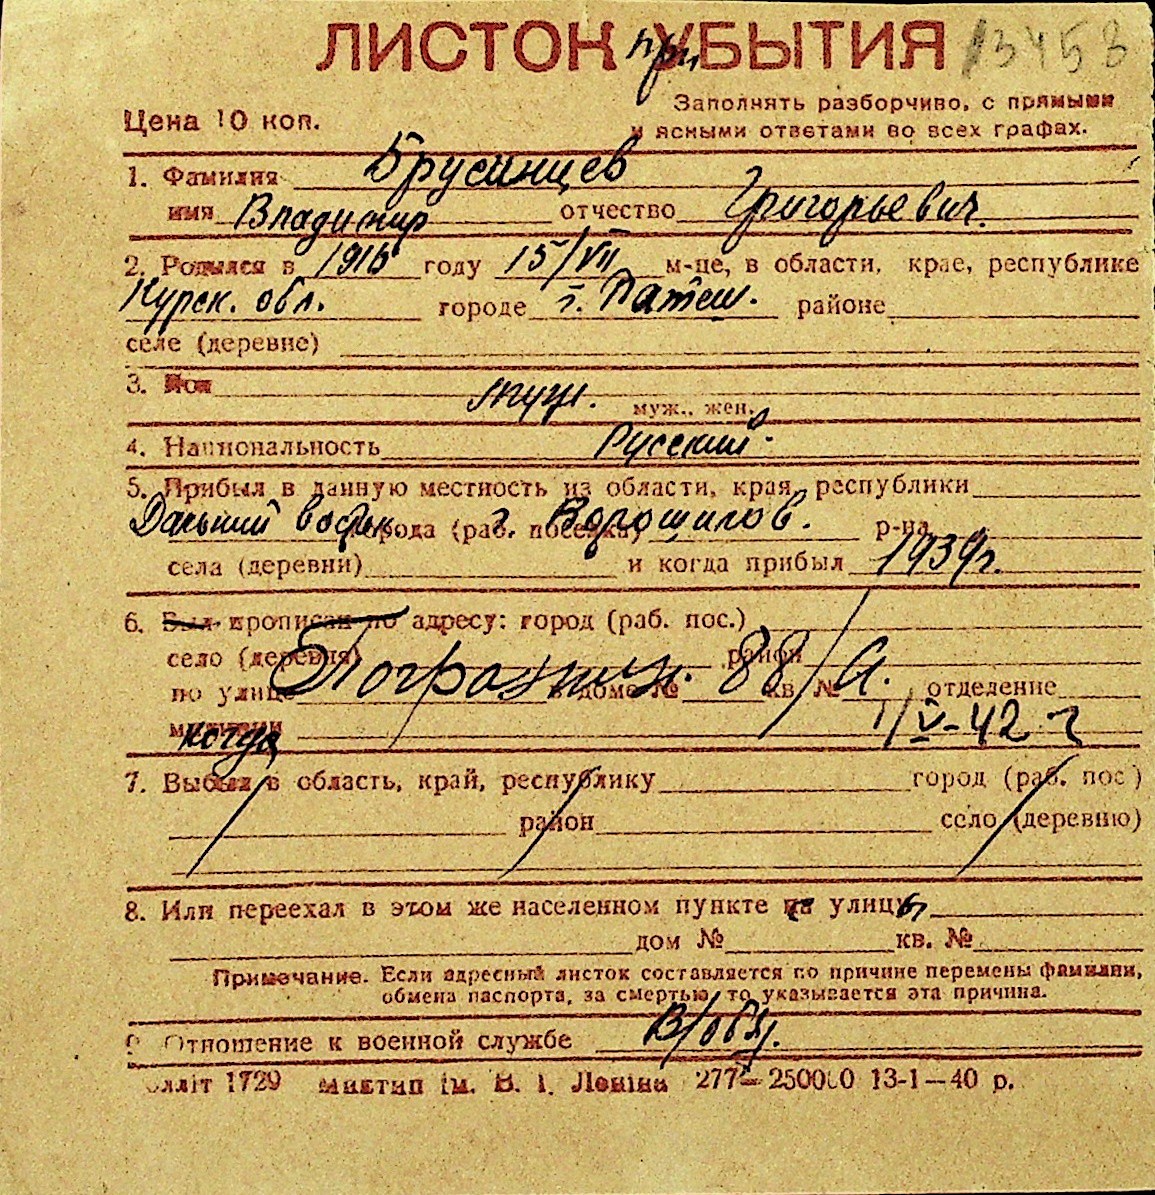 ЛИСТОК при УБЫТИЯ 13453
Цена 10 коп.
Заполнять разборчиво, с прямыми
и ясными ответами во всех графах.
1. Фамилия Брусинцев
имя Владимир отчество Григорьевич.
2. Родился в 1916 году 15/VII м-це, в области, крае, республике
Курск. обл. городе г. Фатеж. районе
селе (деревне)
3. Пол муж.
муж., жен.
4. Национальность Русский.
5. Прибыл в данную местность из области, края, республики
Дальний восток. города (раб. поселка) г. Ворошилов. р-на
села (деревни) и когда прибыл 1939г.
6. Был прописан по адресу: город (раб. пос.)
село (деревня) район
по улице Погранич. в доме № 88/А. кв. № отделение
милиции когда 1/V-42 г
7. Выбыл в область, край, республику город (раб. пос.)
район село (деревню)
8. Или переехал в этом же населенном пункте с улицы
дом № кв. №
Примечание. Если адресный листок составляется по причине перемены фамилии,
обмена паспорта, за смертью, то указывается эта причина.
9. Отношение к военной службе В/обяз.
1729 Миктип ім. В. І. Леніна 277—250000 13-1—40 р.